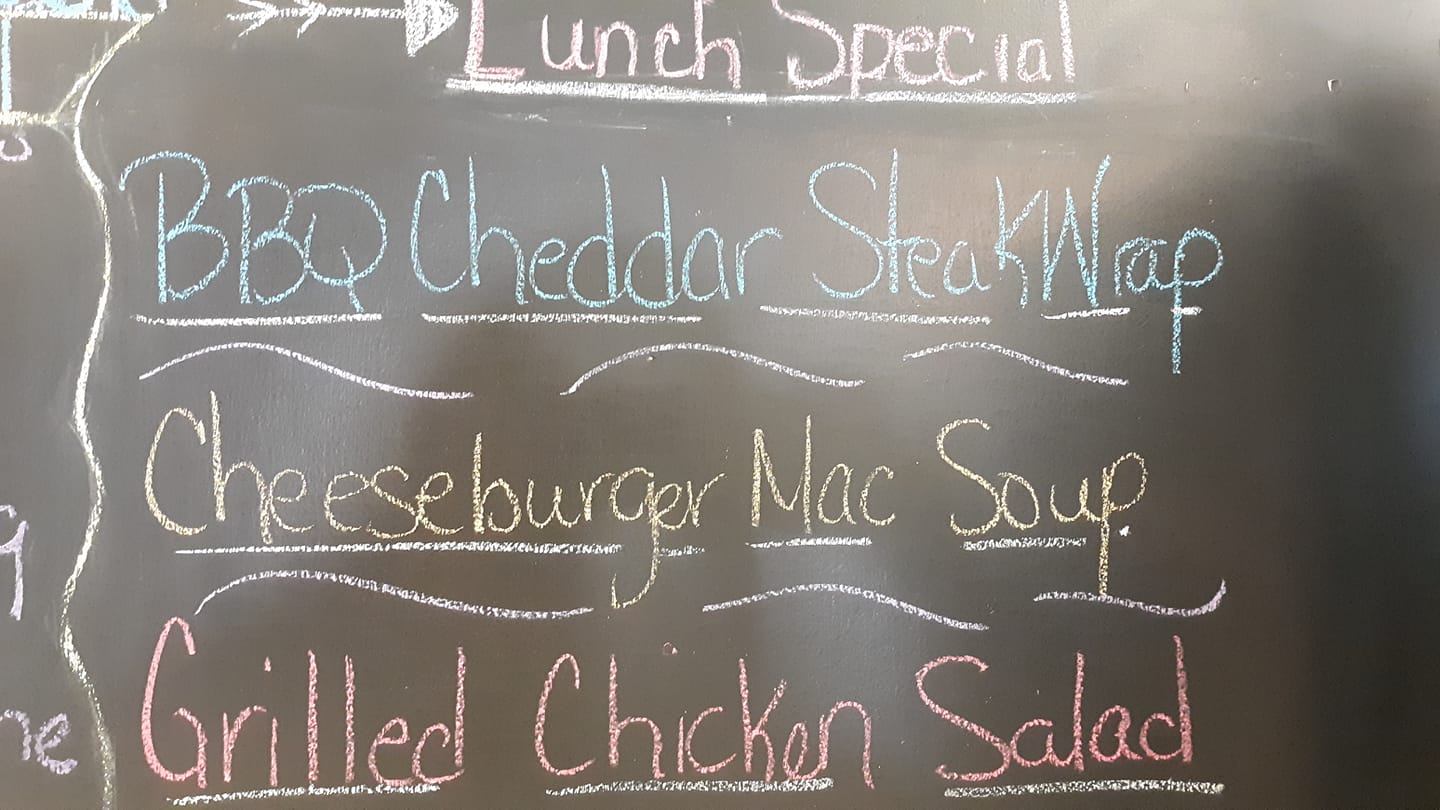 Lunch Special
BBQ Cheddar Steak Wrap
Cheeseburger Mac Soup
Grilled Chicken Salad